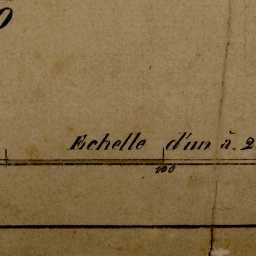 Echelle d'un à 2
100